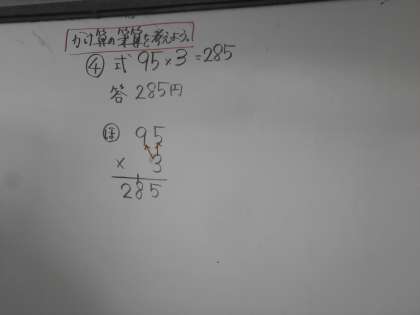 かけ算の筆算を考えよう。
④ 式 95×3=285
答 285円
ほ 95
× 3
285